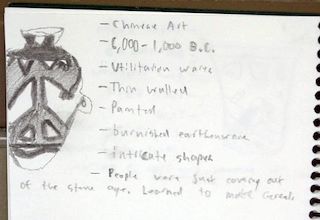 - Chinese Art
- 6,000 - 1,000 B.C.
- Utilitarian wares
- Thin walled
- Painted
- burnished earthenware
- intricate shapes
- People were just coming out
of the stone age. Learned to make cereals